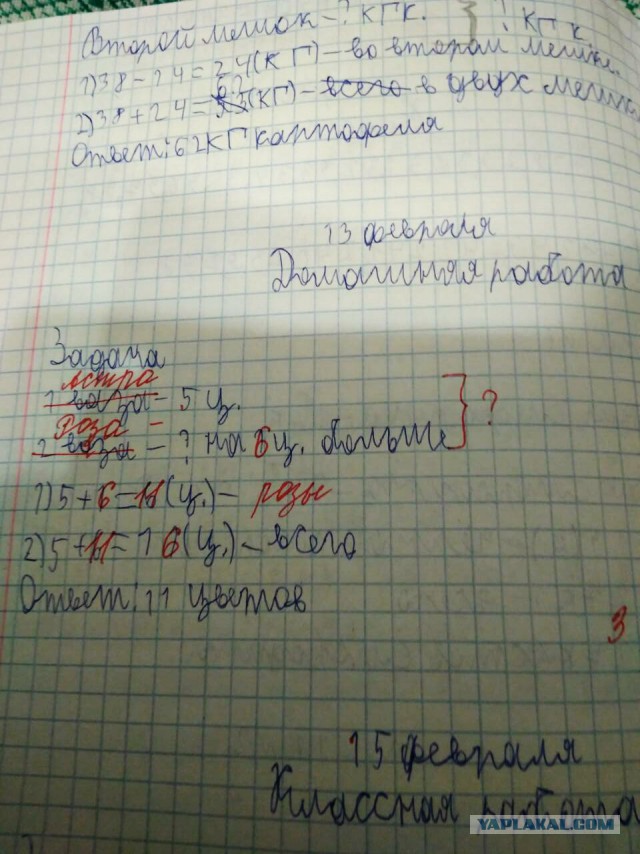 Второй мешок - ? кг к. } ? кг к.
1) 38 - 14 = 24 (кг) - во втором мешке.
2) 38 + 24 = 62 (кг) - всего в двух
Ответ: 62 кг картофеля
13 февраля
Домашняя работа
Задача
Астра
1 ваза - 5 ц.
Роза -
2 ваза - ? на 6 ц. больше } ?
1) 5 + 6 = 11 (ц.) - розы
2) 5 + 11 = 16 (ц.) - всего
Ответ: 11 цветов
3
15 февраля
Классная работа
YAPLAKAL.COM